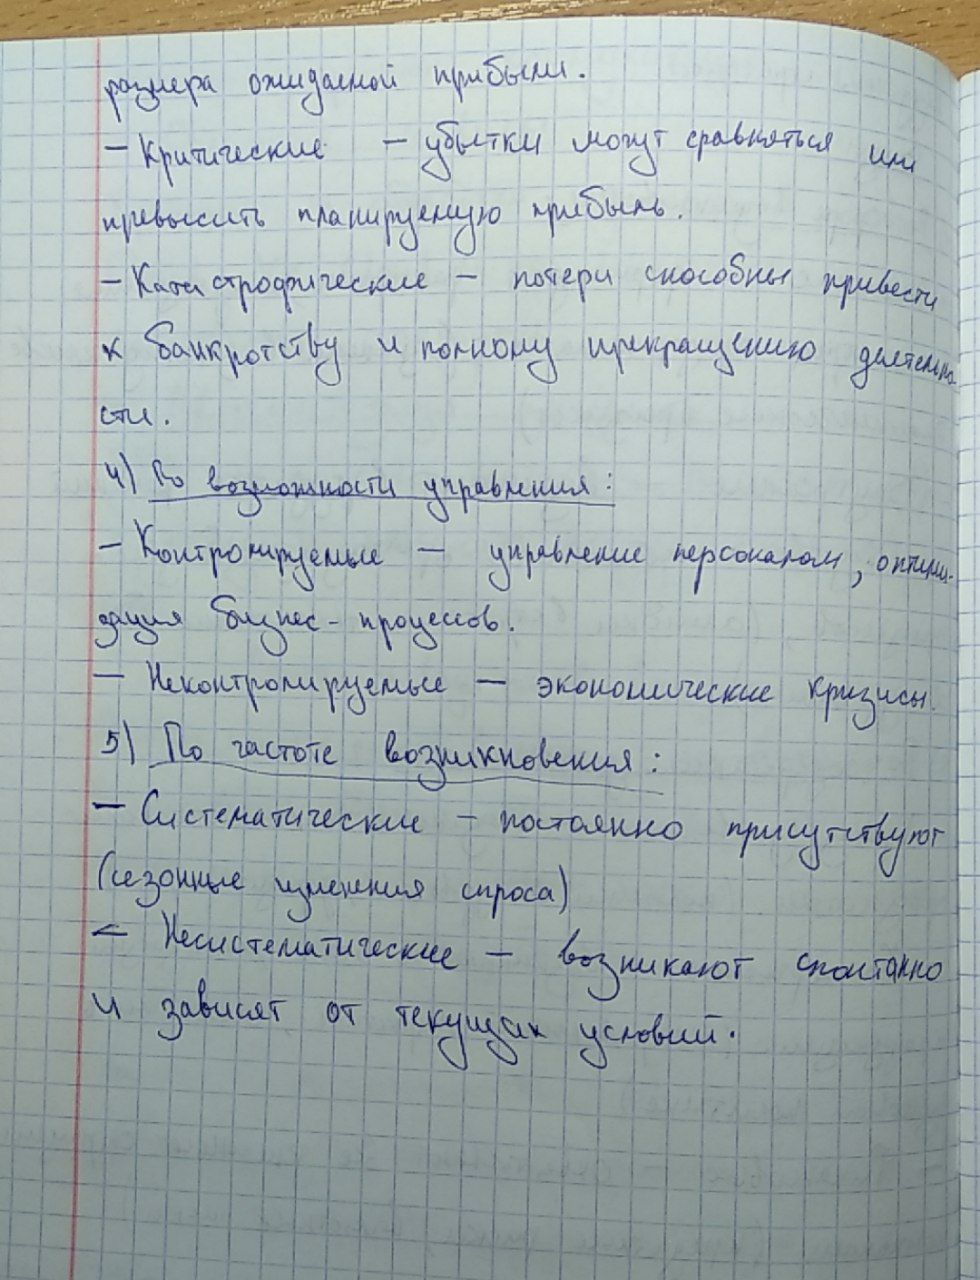 размера ожидаемой прибыли.
– Критические – убытки могут сравняться или
превысить планируемую прибыль.
– Катастрофические – потери способны привести
к банкротству и полному прекращению деятельно
сти.
4) По возможности управления:
– Контролируемые – управление персоналом, оптими-
зация бизнес-процессов.
– Неконтролируемые – экономические кризисы.
5) По частоте возникновения:
– Систематические – постоянно присутствуют
(сезонные изменения спроса)
– Несистематические – возникают спонтанно
и зависят от текущих условий.